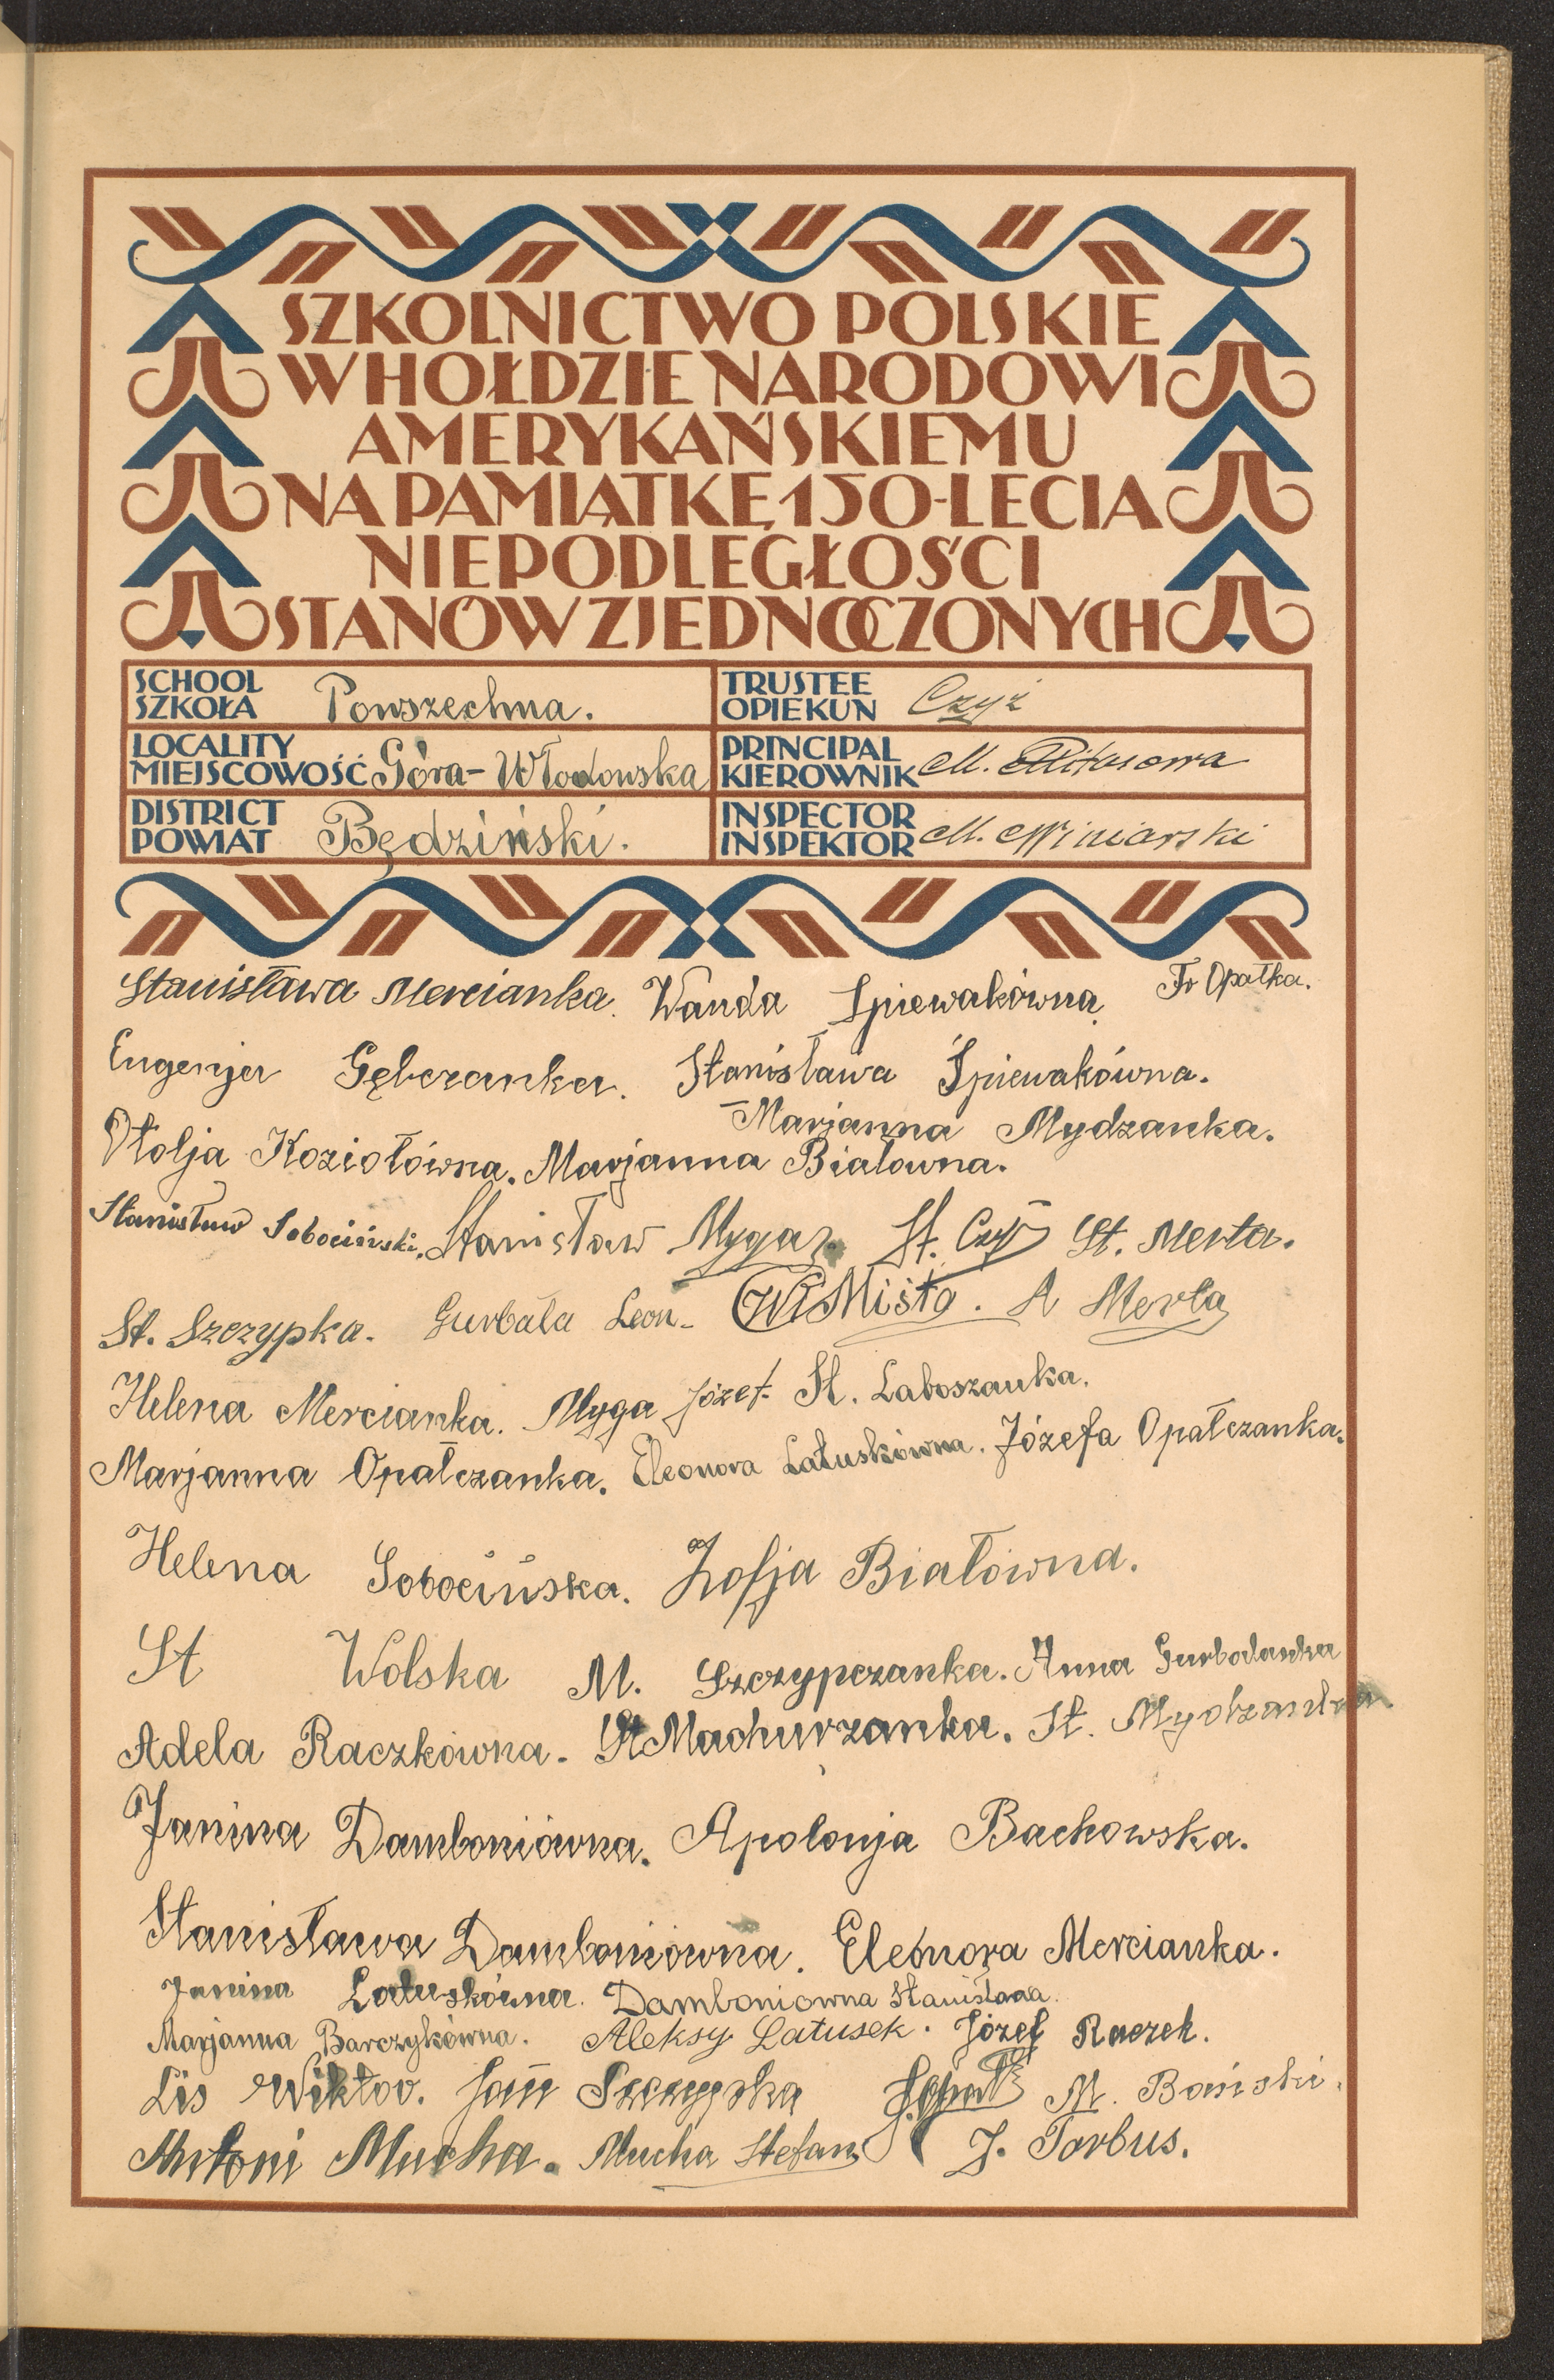 SZKOLNICTWO POLSKIE
W HOŁDZIE NARODOWI
AMERYKAŃSKIEMU
NA PAMIĄTKĘ 150-LECIA
NIEPODLEGŁOŚCI
STANÓW ZJEDNOCZONYCH
SCHOOL
SZKOŁA Powszechna.
TRUSTEE
OPIEKUN Czyż
LOCALITY
MIEJSCOWOŚĆ Góra-Włodowska
PRINCIPAL
KIEROWNIK M.
DISTRICT
POWIAT Będziński.
INSPECTOR
INSPEKTOR M. Winiarski
Stanisława Mercianka. Wanda Spiewakówna. Fr Opałka.
Eugenja Gębczanka. Stanisława Śpiewakówna.
Marjanna Mydzanka.
Otolja Koziołówna. Marjanna Białowna.
Stanisław Sobociński. Stanisław Myga St. Czyż St. Merta.
St. Szczypka. Gurbała Leon. Wł Misto. A Merta
Helena Mercianka. Myga Józef. St. Laboszanka.
Marjanna Opałczanka. Eleonora Latuskówna. Józefa Opałczanka.
Helena Sobocińska. Zofja Białówna.
St Wolska M. Szczypczanka. Anna Gurbalanka
Adela Raczkówna. St Machurzanka. St. Mydzanka.
Janina Damboniówna. Apolonja Bachowska.
Stanisława Damboniówna. Eleonora Mercianka.
Janina Latuskówna. Damboniowna Stanisława.
Marjanna Barczykówna. Aleksy Latusek. Józef Raczek.
Lis Wiktor. Jan Szczypka M. Bański.
Antoni Mucha. Mucha Stefan J. Torbus.